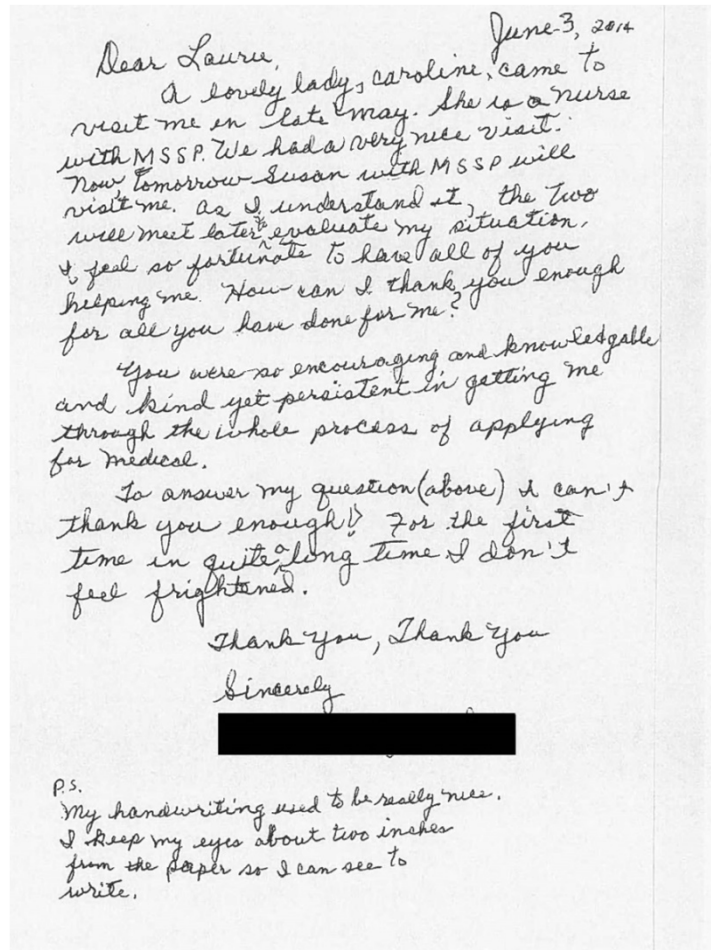 June 3, 2014
Dear Laurie,
A lovely lady, Caroline, came to
visit me in late May. She is a nurse
with MSSP. We had a very nice visit.
Now, tomorrow Susan with MSSP will
visit me. As I understand it, the two
will meet later to evaluate my situation.
I feel so fortunate to have all of you
helping me. How can I thank you enough
for all you have done for me?
You were so encouraging and knowledgable
and kind yet persistent in getting me
through the whole process of applying
for medical.
To answer my question (above) I can't
thank you enough! For the first
time in quite a long time I don't
feel frightened.
Thank You, Thank You
Sincerely
P.S.
My handwriting used to be really nice.
I keep my eyes about two inches
from the paper so I can see to
write.